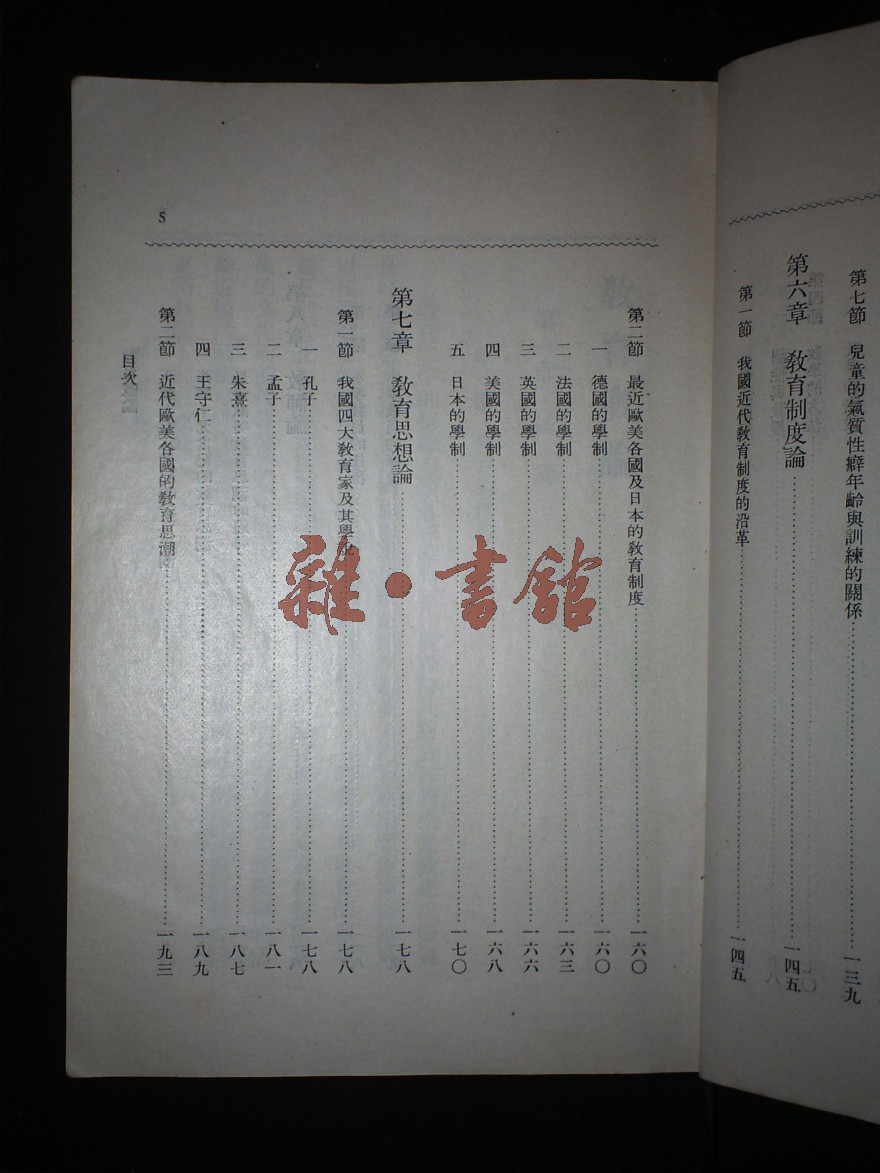 第七節 兒童的氣質性癖年齡與訓練的關係……一三九
第六章 教育制度論……一四五
第一節 我國近代教育制度的沿革……一四五
第二節 最近歐美各國及日本的教育制度……一六〇
一 德國的學制……一六〇
二 法國的學制……一六三
三 英國的學制……一六六
四 美國的學制……一六八
五 日本的學制……一七〇
第七章 教育思想論……一七八
第一節 我國四大教育家及其學說……一七八
一 孔子……一七八
二 孟子……一八一
三 朱熹……一八七
四 王守仁……一八九
第二節 近代歐美各國的教育思潮……一九三
目次
5
雜·書館